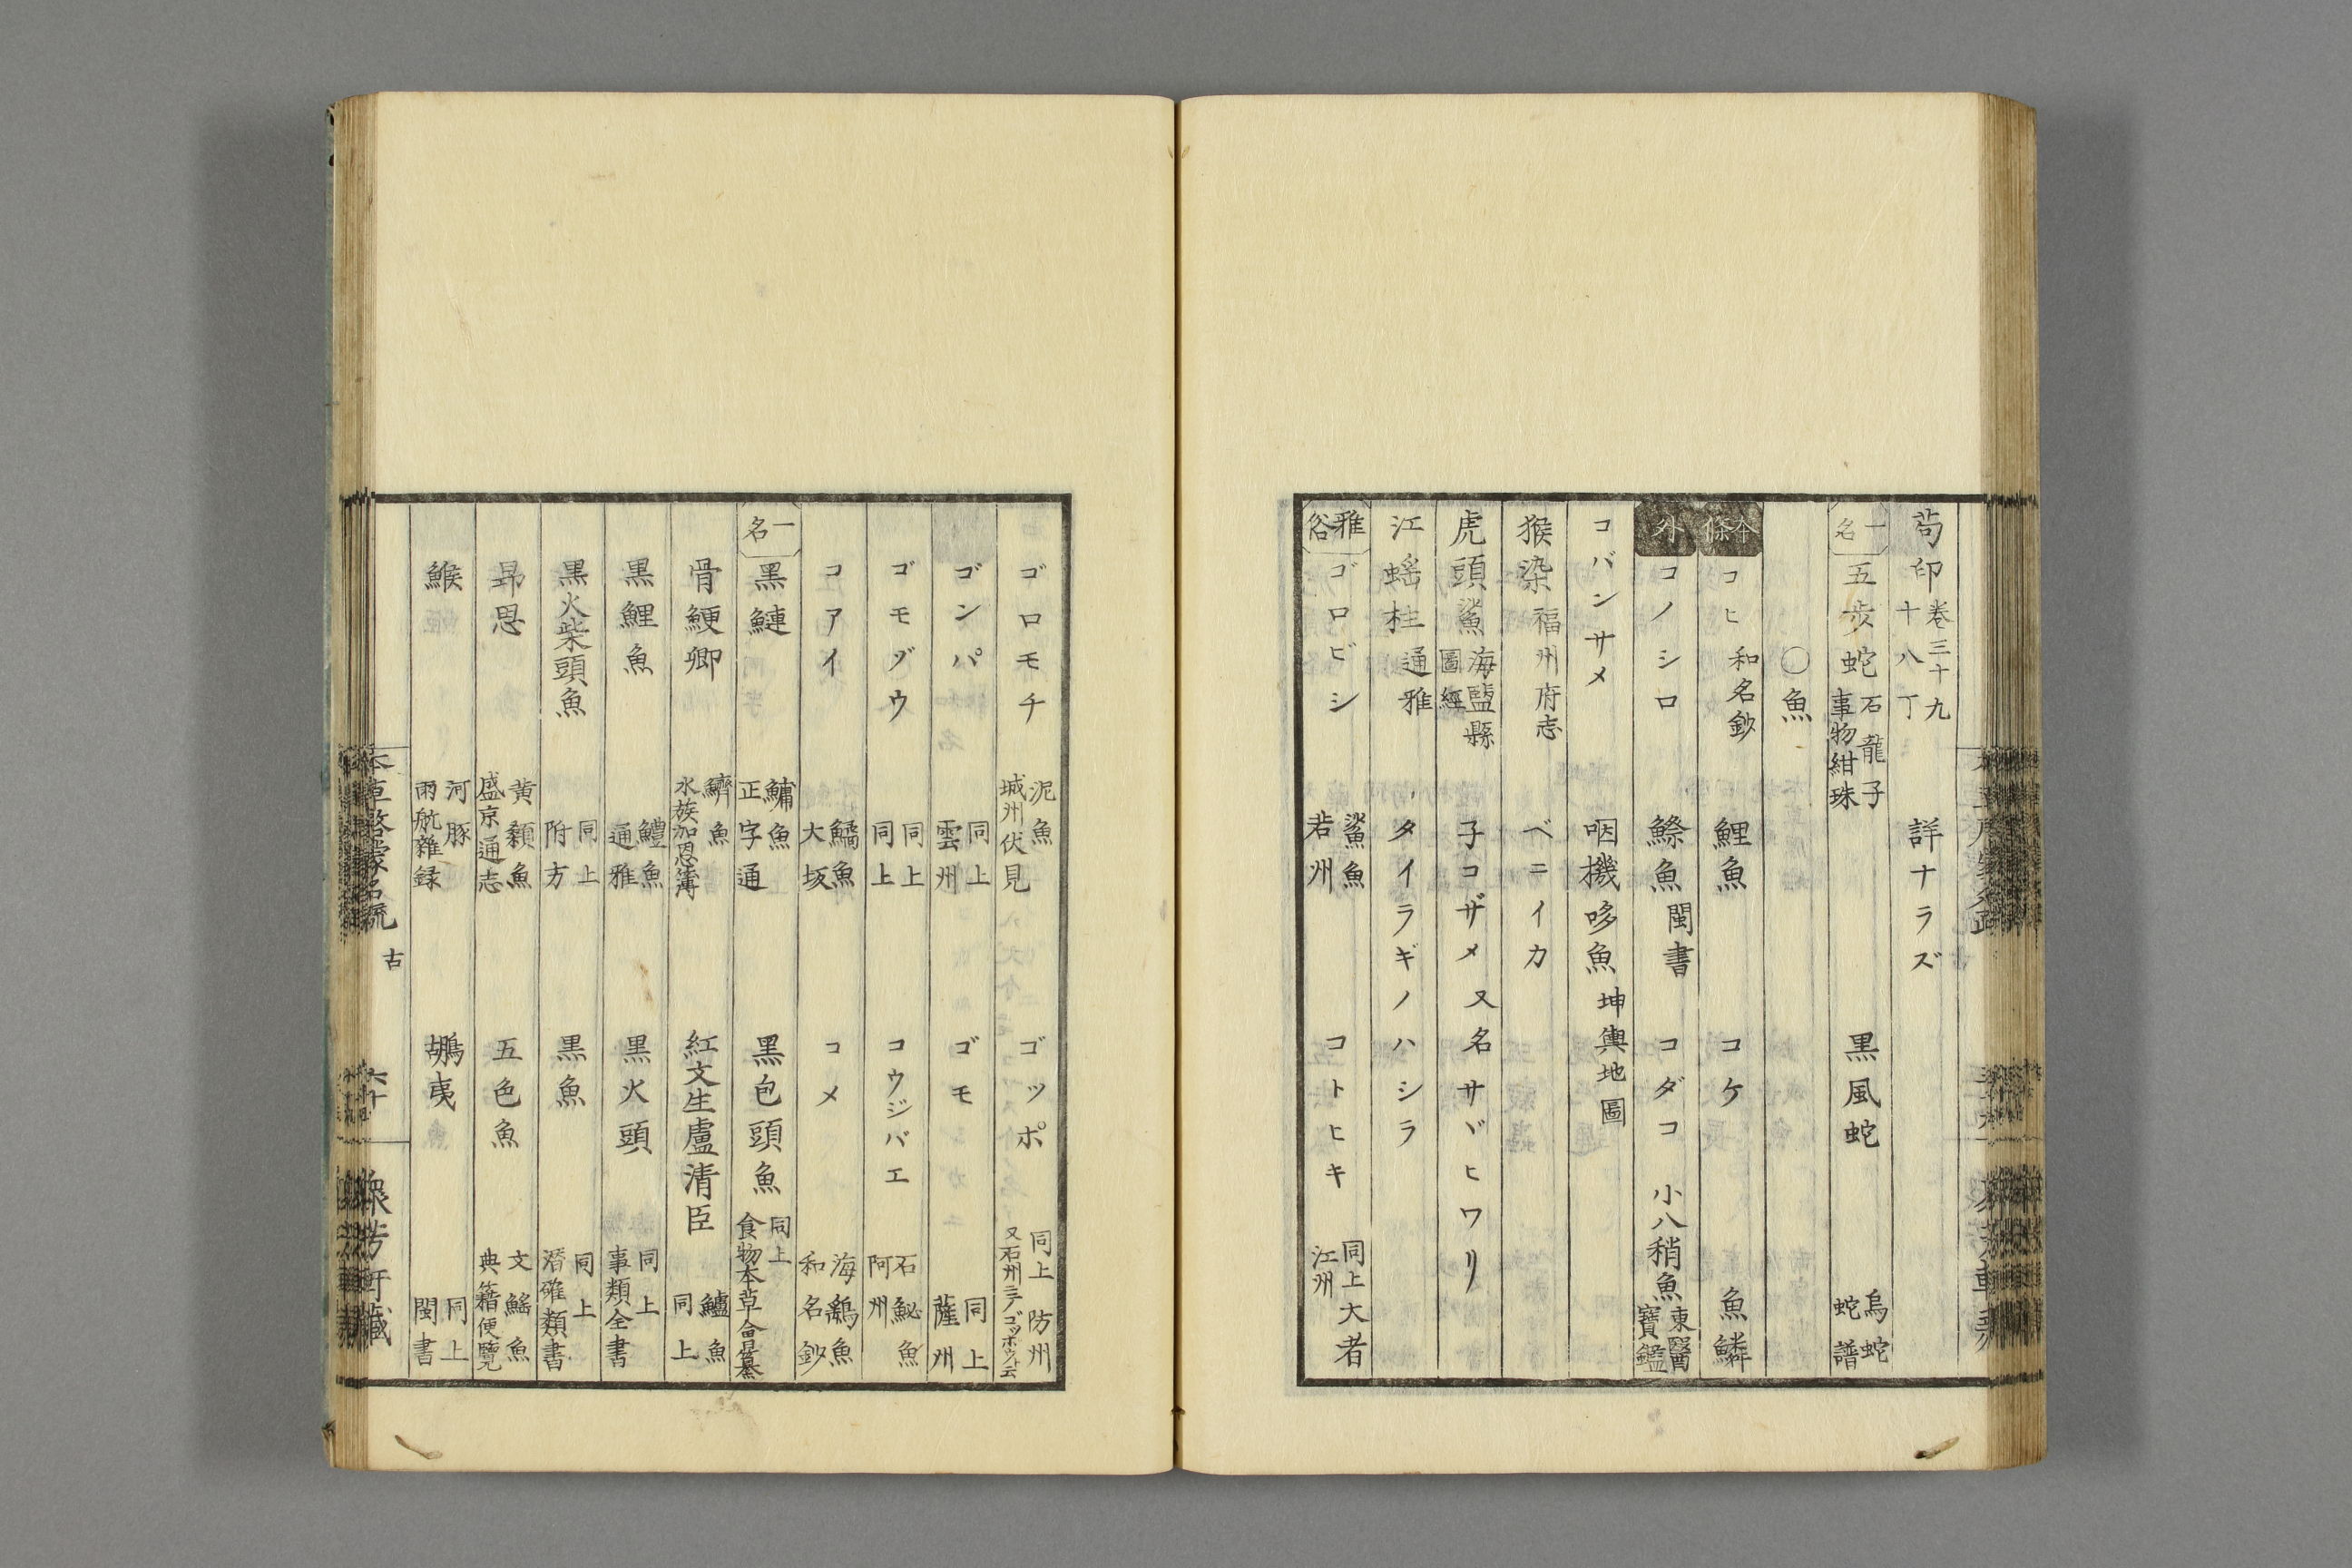 茍印 巻三十九 十八丁 詳ナラズ
一名 五歩蛇 石龍子 事物紺珠 黒風蛇 烏蛇 蛇譜
〇魚
本條 コヒ 和名鈔 鯉魚 コケ 魚鱗
外 コノシロ 鰶魚 閩書 コダコ 小八稍魚 東醫寶鑑
コバンサメ 咽機哆魚 坤輿地圖
猴染 福州府志 ベニイカ
虎頭鯊 海鹽縣圖經 子コザメ 又名サヾヒワリ
江蟯柱 通雅 タイラギノハシラ
雅俗 ゴロビシ 鯊魚 若州 コトヒキ 同上大者 江州
ゴロモチ 泥魚 城州伏見 ゴッポ 同上 防州
ゴンパ 同上 雲州 ゴモ 同上 薩州
ゴモヅウ 同上 同上 コウジバエ 石鮅魚 阿州
コアイ 鱊魚 大坂 コメ 海鷂魚 和名鈔
一名 黒鰱 鱅魚 正字通 黒包頭魚 同上 食物本草會纂
骨鯁卿 鱭魚 水族加恩簿 紅文生盧清臣 鱸魚 同上
黒鯉魚 鱧魚 通雅 黒火頭 同上 事類全書
黒火柴頭魚 同上 附方 黒魚 同上 潜確類書
昻恩 黄顙魚 盛京通志 五色魚 文鰩魚 典籍便覽
鯸 河豚 雨航雜録 鶘夷 同上 閩書
本草啓蒙名疏 古 六十 衆芳軒藏